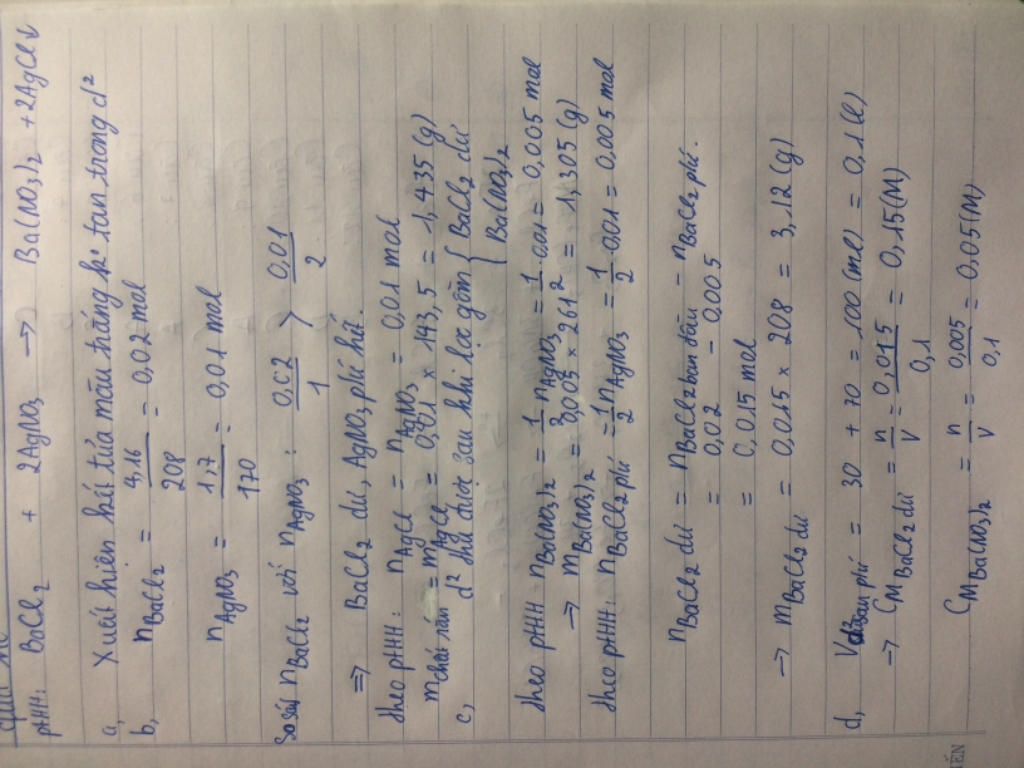 PTHH: BaCl2 + 2AgNO3 → Ba(NO3)2 + 2AgCl↓
a, Xuất hiện kết tủa màu trắng k° tan trong d²
b, nBaCl2 = 4,16/208 = 0,02 mol
nAgNO3 = 1,7/170 = 0,01 mol
So sánh nBaCl2 với nAgNO3 : 0,02/1 > 0,01/2
⇒ BaCl2 dư, AgNO3 pứ hết.
theo PTHH: nAgCl = nAgNO3 = 0,01 mol
mchất rắn = mAgCl = 0,01 × 143,5 = 1,435 (g)
c, d² thu được sau khi lọc gồm { BaCl2 dư
Ba(NO3)2
theo PTHH nBa(NO3)2 = 1/2 nAgNO3 = 1/2 0,01 = 0,005 mol
→ mBa(NO3)2 = 0,005 × 261 = 1,305 (g)
theo PTHH: nBaCl2 pứ = 1/2 nAgNO3 = 1/2 0,01 = 0,005 mol
nBaCl2 dư = nBaCl2 ban đầu - nBaCl2 pứ.
= 0,02 - 0,005
= 0,015 mol
→ mBaCl2 dư = 0,015 × 208 = 3,12 (g)
d, Vd² sau pứ = 30 + 70 = 100 (ml) = 0,1 (l)
→ CM BaCl2 dư = n/V = 0,015/0,1 = 0,15 (M)
CM Ba(NO3)2 = n/V = 0,005/0,1 = 0,05 (M)